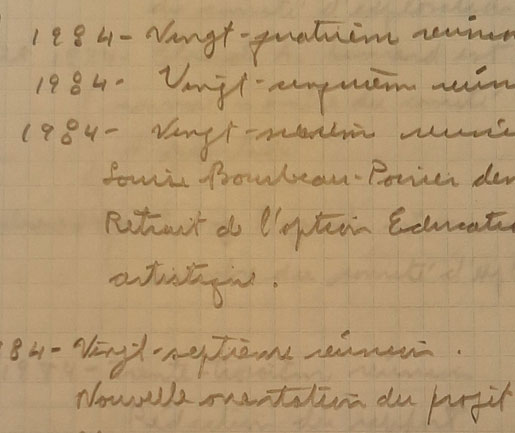 1984- Vingt-quatrièm réunion
1984- Vingt-cinquièm réun
1984- Vingt-sixièm réuni
Louise Bourbeau-Poirier dem
Retrait de l'option Educatio
artistique.
984- Vingt-septième réunion.
Nouvelle orientation du projet